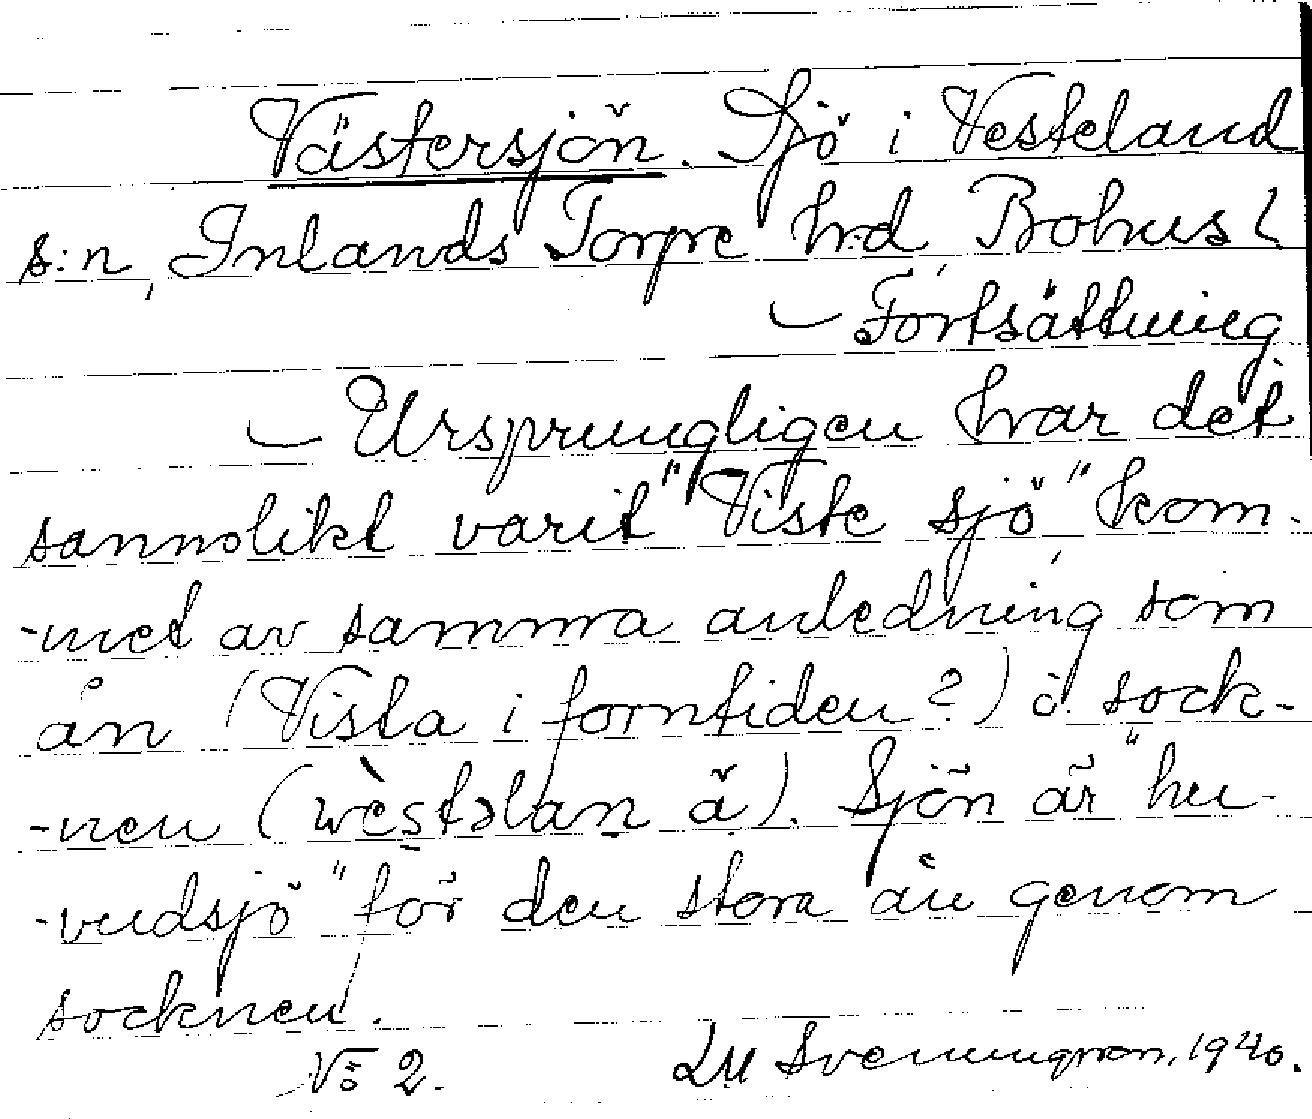 Västersjön. Sjö i Vesteland
s:n, Inlands Torpe hrd, Bohusl
– Fortsättning
– Ursprungligen har det
sannolikt varit "Viste sjö", kom-
-met av samma anledning som
ån (Vista i forntiden?) i sock-
-nen (wèstəlan å). Sjön är "hu-
-vudsjö" för den stora ån genom
socknen.
No 2. LM Svenungsson, 1940.